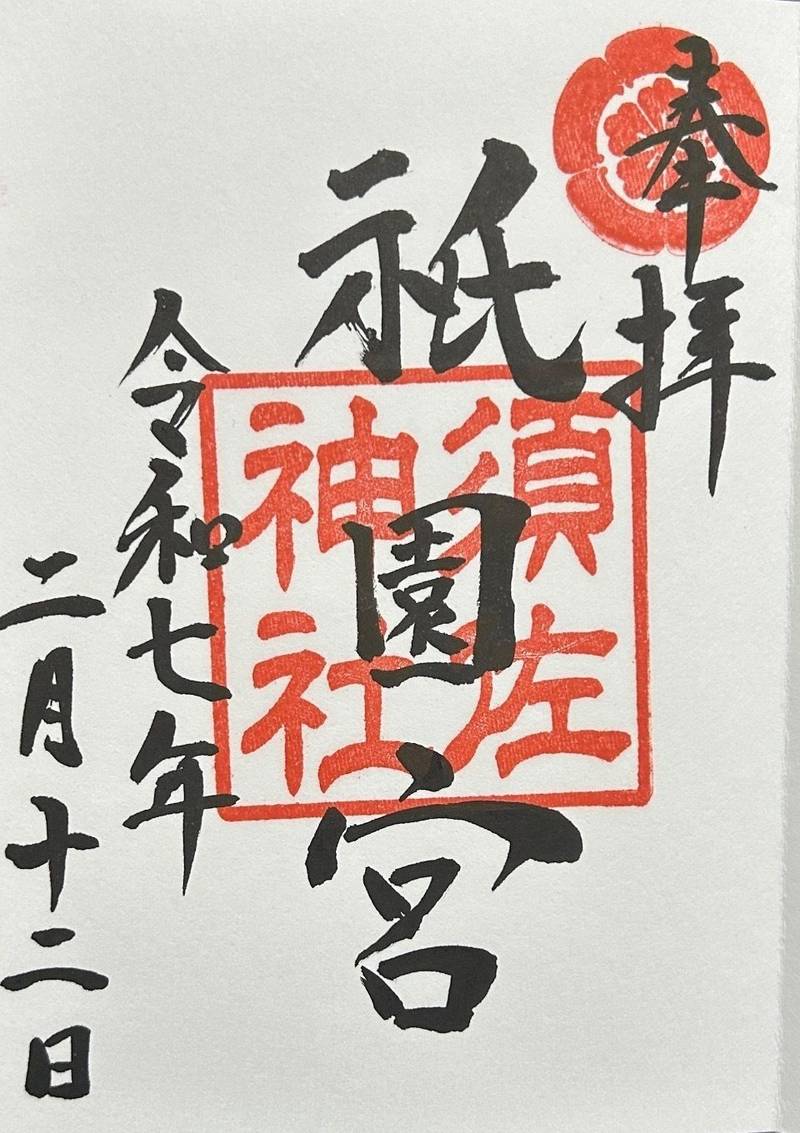 奉拝
祇園宮
須佐
神社
令和七年
二月十二日